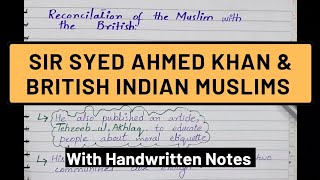 Reconcilation of the Muslim with
the British:
SIR SYED AHMED KHAN &
BRITISH INDIAN MUSLIMS
He also published an article,
Tehzeeb ul Akhlaq, to educate
people about moral etiquette
With Handwritten Notes
His
two